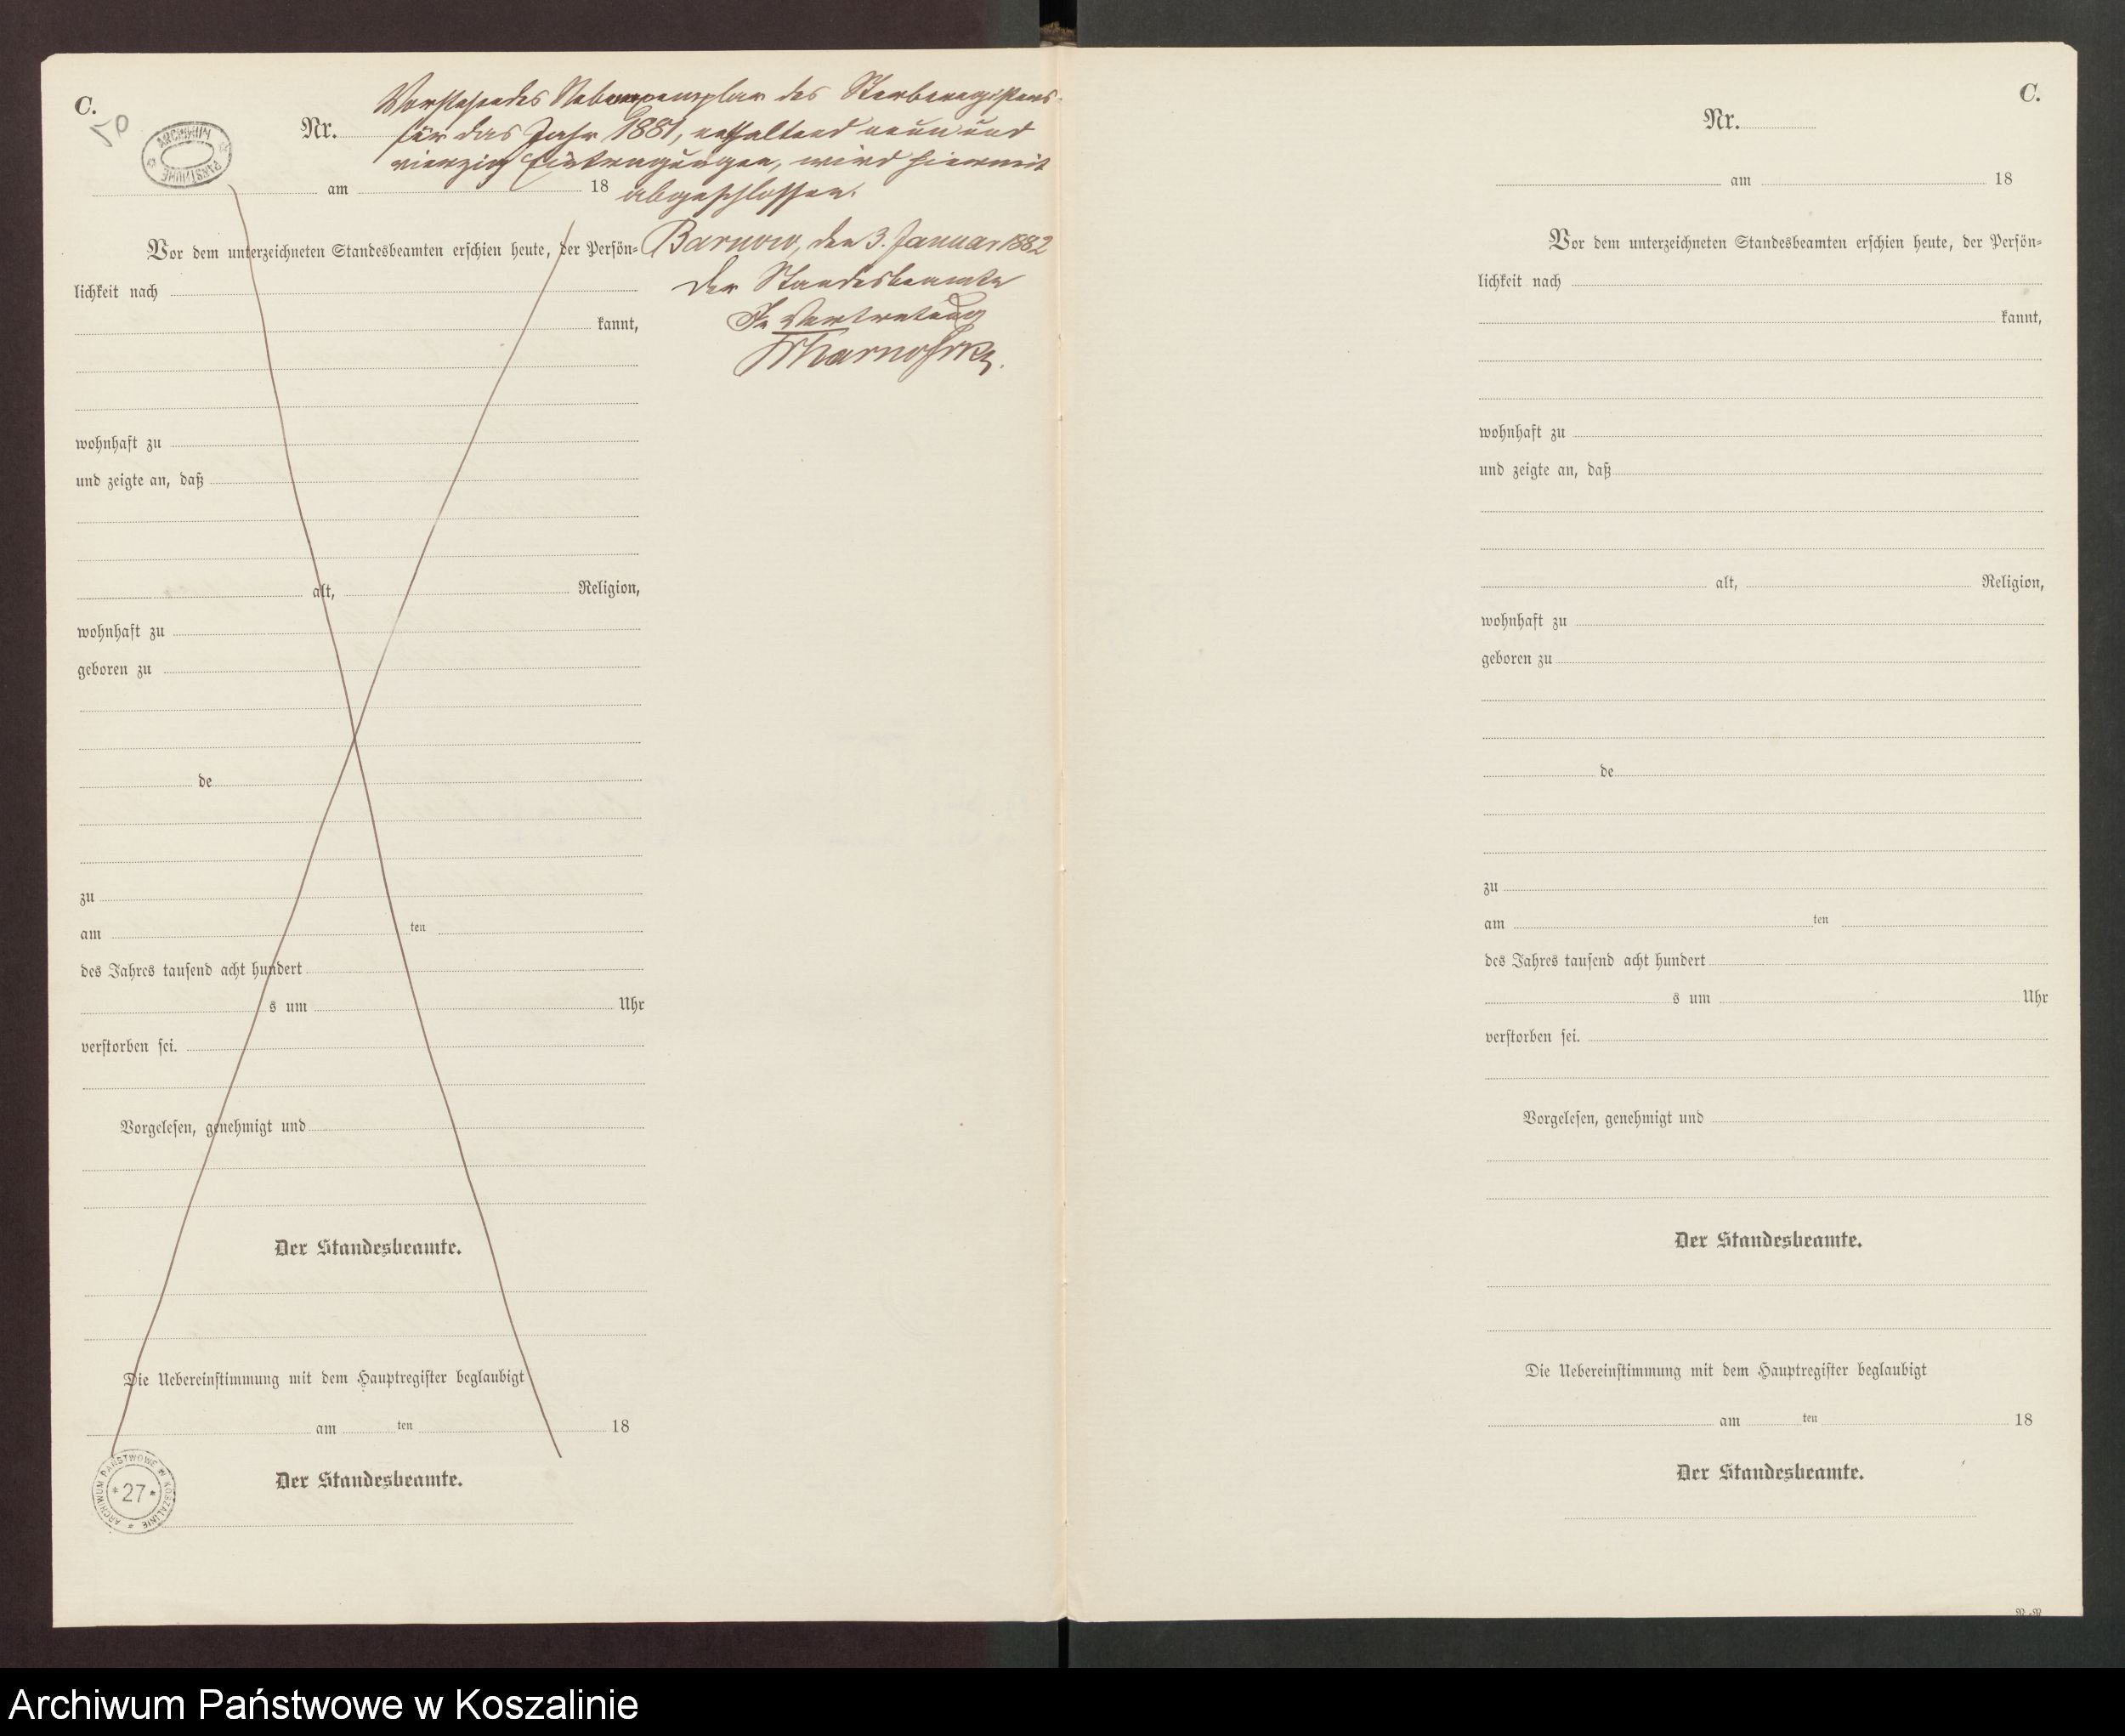 C.
50
ARCHIWUM PAŃSTWOWE
Vorstehendes Nebenexemplar des Sterberegisters
Nr. für das Jahr 1881, enthaltend neun und
vierzig Eintragungen, wird hiermit
am 18 abgeschlossen.
Vor dem unterzeichneten Standesbeamten erschien heute, der Persön-
Barnow, den 3. Januar 1882
Der Standesbeamte
lichkeit nach
In Vertretung
kannt,
wohnhaft zu
und zeigte an, daß
alt, Religion,
wohnhaft zu
geboren zu
de
zu
am ten
des Jahres tausend acht hundert
s um Uhr
verstorben sei.
Vorgelesen, genehmigt und
Der Standesbeamte.
Die Uebereinstimmung mit dem Hauptregister beglaubigt
am ten 18
Der Standesbeamte.
ARCHIWUM PAŃSTWOWE W KOSZALINIE
*27*
C.
Nr.
am 18
Vor dem unterzeichneten Standesbeamten erschien heute, der Persön-
lichkeit nach
kannt,
wohnhaft zu
und zeigte an, daß
alt, Religion,
wohnhaft zu
geboren zu
de
zu
am ten
des Jahres tausend acht hundert
s um Uhr
verstorben sei.
Vorgelesen, genehmigt und
Der Standesbeamte.
Die Uebereinstimmung mit dem Hauptregister beglaubigt
am ten 18
Der Standesbeamte.
Archiwum Państwowe w Koszalinie